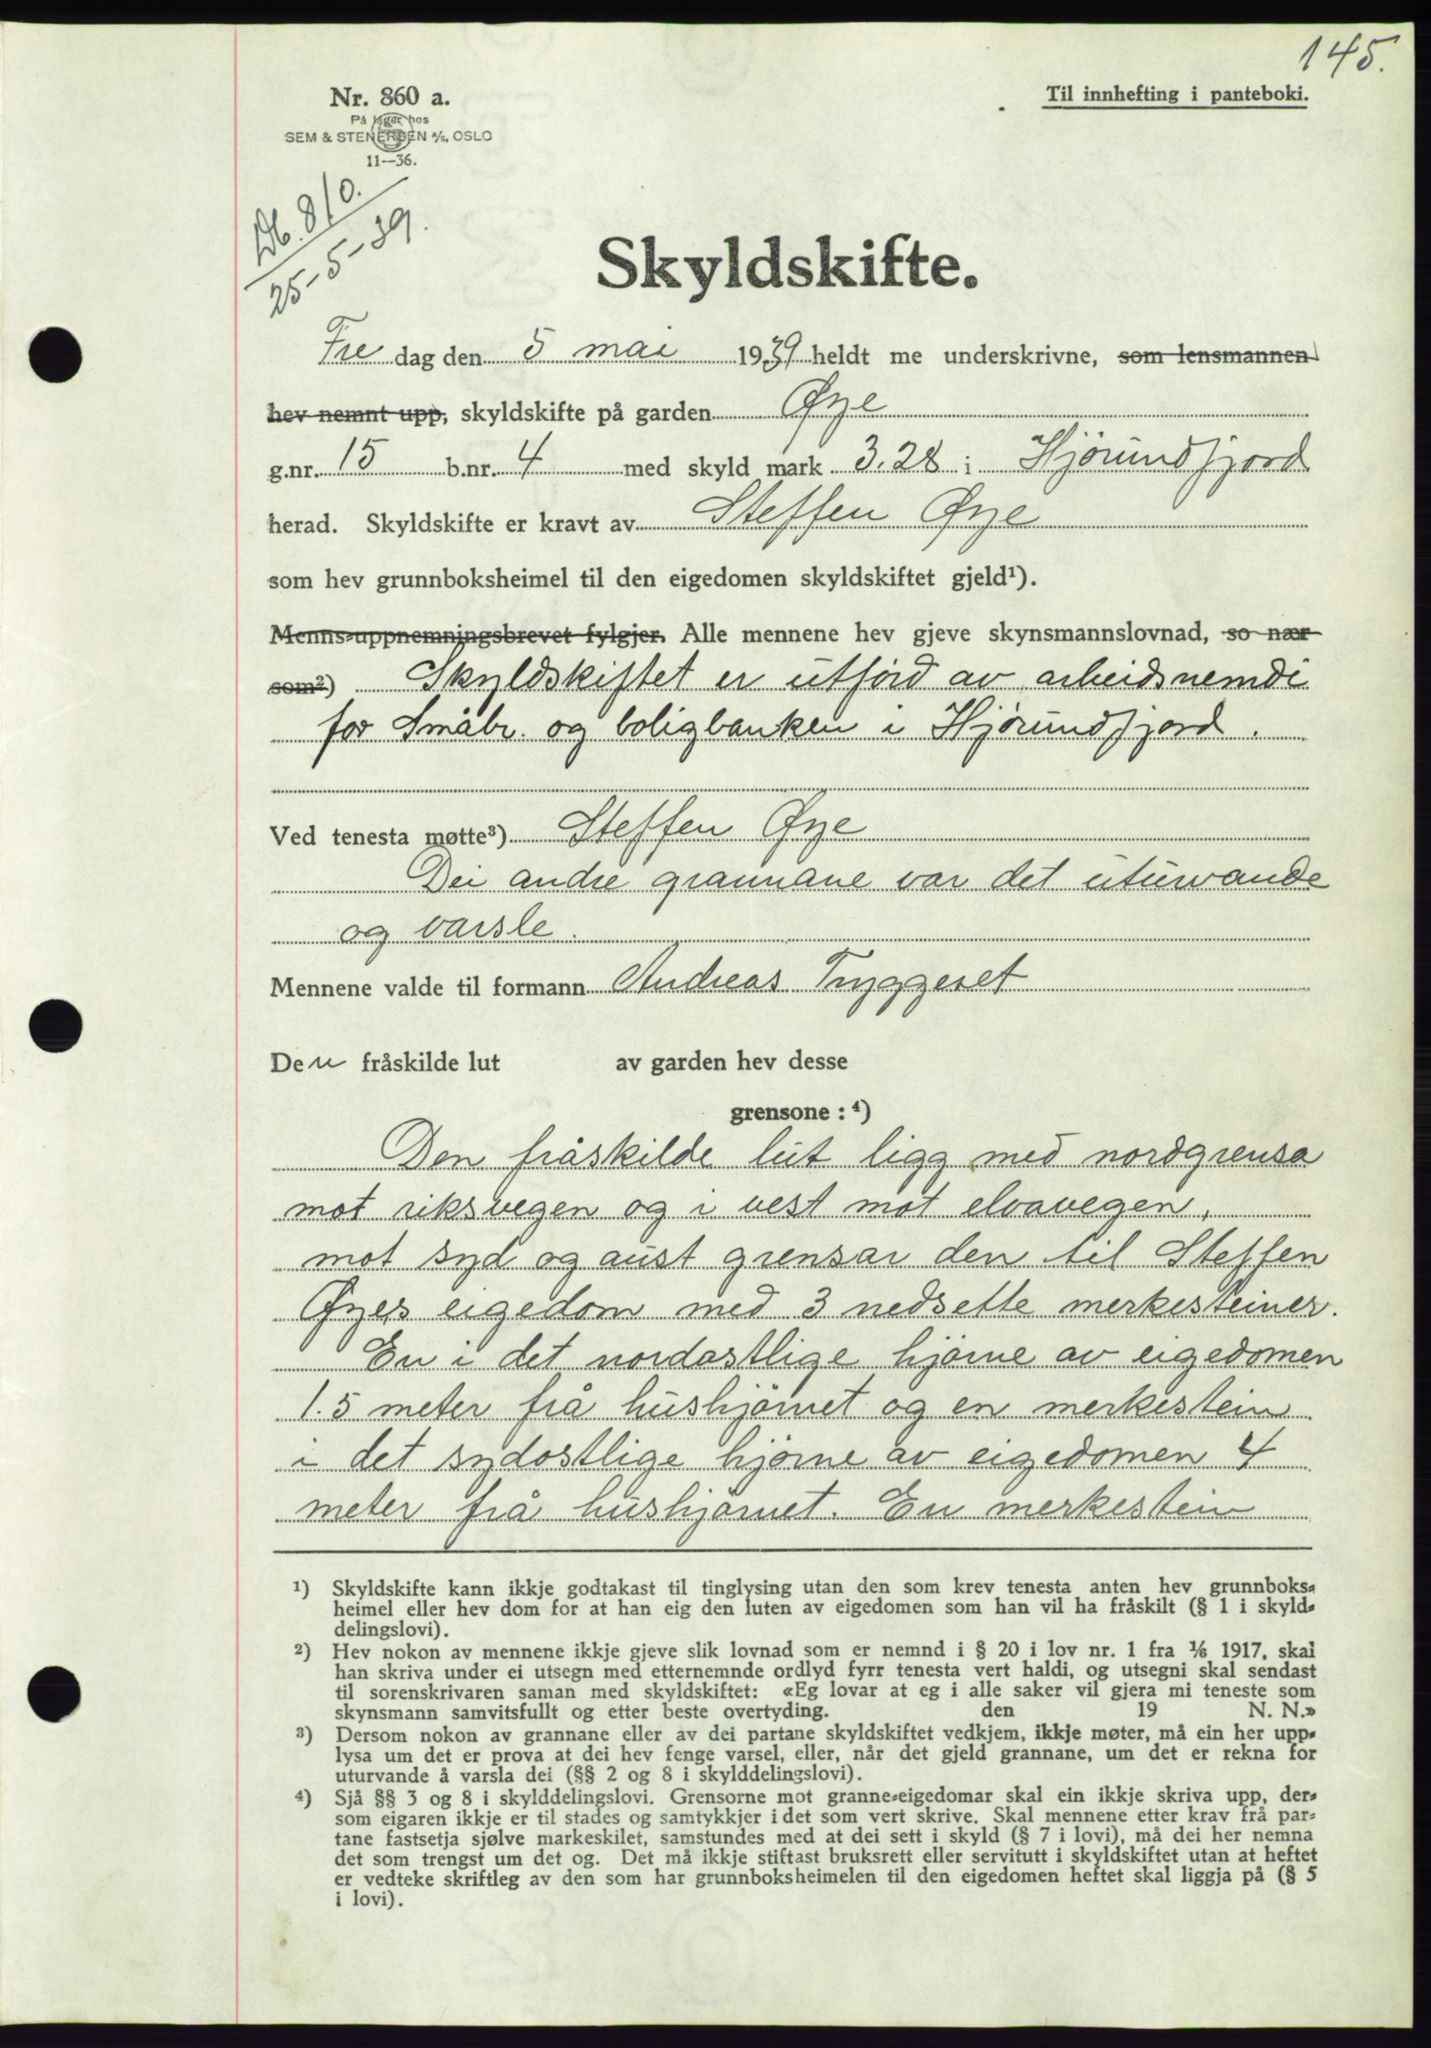 145.
Nr. 860 a.
På lager hos
SEM & STENERSEN A/S, OSLO
11—36.
Til innhefting i panteboki.
Db. 810.
25-5-39.
Skyldskifte.
Fre dag den 5 mai 1939 heldt me underskrivne, som lensmannen
hev nemnt upp, skyldskifte på garden Øye
g.nr. 15 b.nr. 4 med skyld mark 3.28 i Hjørundfjord
herad. Skyldskifte er kravt av Steffen Øye
som hev grunnboksheimel til den eigedomen skyldskiftet gjeld¹).
Menns-uppnemningsbrevet fylgjer. Alle mennene hev gjeve skynsmannslovnad, so nær
som²) Skyldskiftet er utførd av arbeidsnemdi
for Småbr. og boligbanken i Hjørundfjord.
Ved tenesta møtte³) Steffen Øye
Dei andre grannane var det uturvande
og varsle.
Mennene valde til formann Andreas Tryggeset
Den fråskilde lut av garden hev desse
grensone : ⁴)
Den fråskilde lut ligg med nordgrensa
mot riksvegen og i vest mot elvavegen,
mot syd og aust grensar den til Steffen
Øyes eigedom med 3 nedsette merkesteiner.
En i det nordøstlige hjørne av eigedomen
1.5 meter frå hushjørnet og en merkestein
i det sydøstlige hjørne av eigedomen 4
meter frå hushjørnet. En merkestein
¹) Skyldskifte kann ikkje godtakast til tinglysing utan den som krev tenesta anten hev grunnboks-
heimel eller hev dom for at han eig den luten av eigedomen som han vil ha fråskilt (§ 1 i skyld-
delingslovi).
²) Hev nokon av mennene ikkje gjeve slik lovnad som er nemnd i § 20 i lov nr. 1 fra 1/6 1917, skal
han skriva under ei utsegn med etternemnde ordlyd fyrr tenesta vert haldi, og utsegni skal sendast
til sorenskrivaren saman med skyldskiftet: «Eg lovar at eg i alle saker vil gjera mi teneste som
skynsmann samvitsfullt og etter beste overtyding. den 19 N. N.»
³) Dersom nokon av grannane eller av dei partane skyldskiftet vedkjem, ikkje møter, må ein her upp-
lysa um det er prova at dei hev fenge varsel, eller, når det gjeld grannane, um det er rekna for
uturvande å varsla dei (§§ 2 og 8 i skylddelingslovi).
⁴) Sjå §§ 3 og 8 i skylddelingslovi. Grensorne mot granne-eigedomar skal ein ikkje skriva upp, der-
som eigaren ikkje er til stades og samtykkjer i det som vert skrive. Skal mennene etter krav frå par-
tane fastsetja sjølve markeskilet, samstundes med at dei sett i skyld (§ 7 i lovi), må dei her nemna
det som trengst um det og. Det må ikkje stiftast bruksrett eller servitutt i skyldskiftet utan at heftet
er vedteke skriftleg av den som har grunnboksheimelen til den eigedomen heftet skal liggja på (§ 5
i lovi).